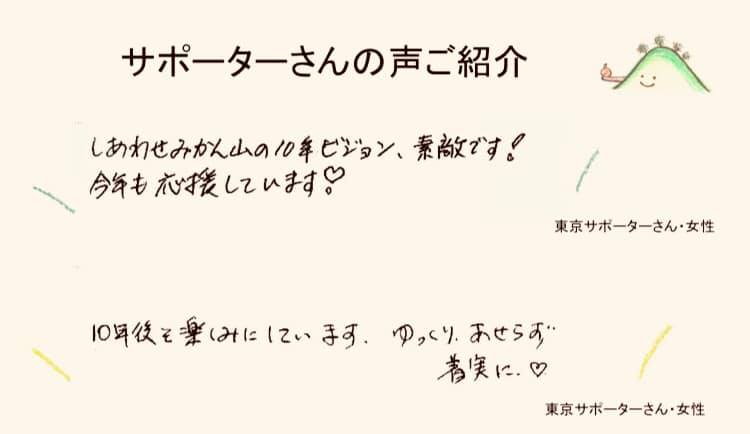 サポーターさんの声ご紹介
しあわせみかん山の10年ビジョン、素敵です!
今年も応援しています!♡
東京サポーターさん・女性
10年後を楽しみにしています. ゆっくり.あせらず
着実に.♡
東京サポーターさん・女性